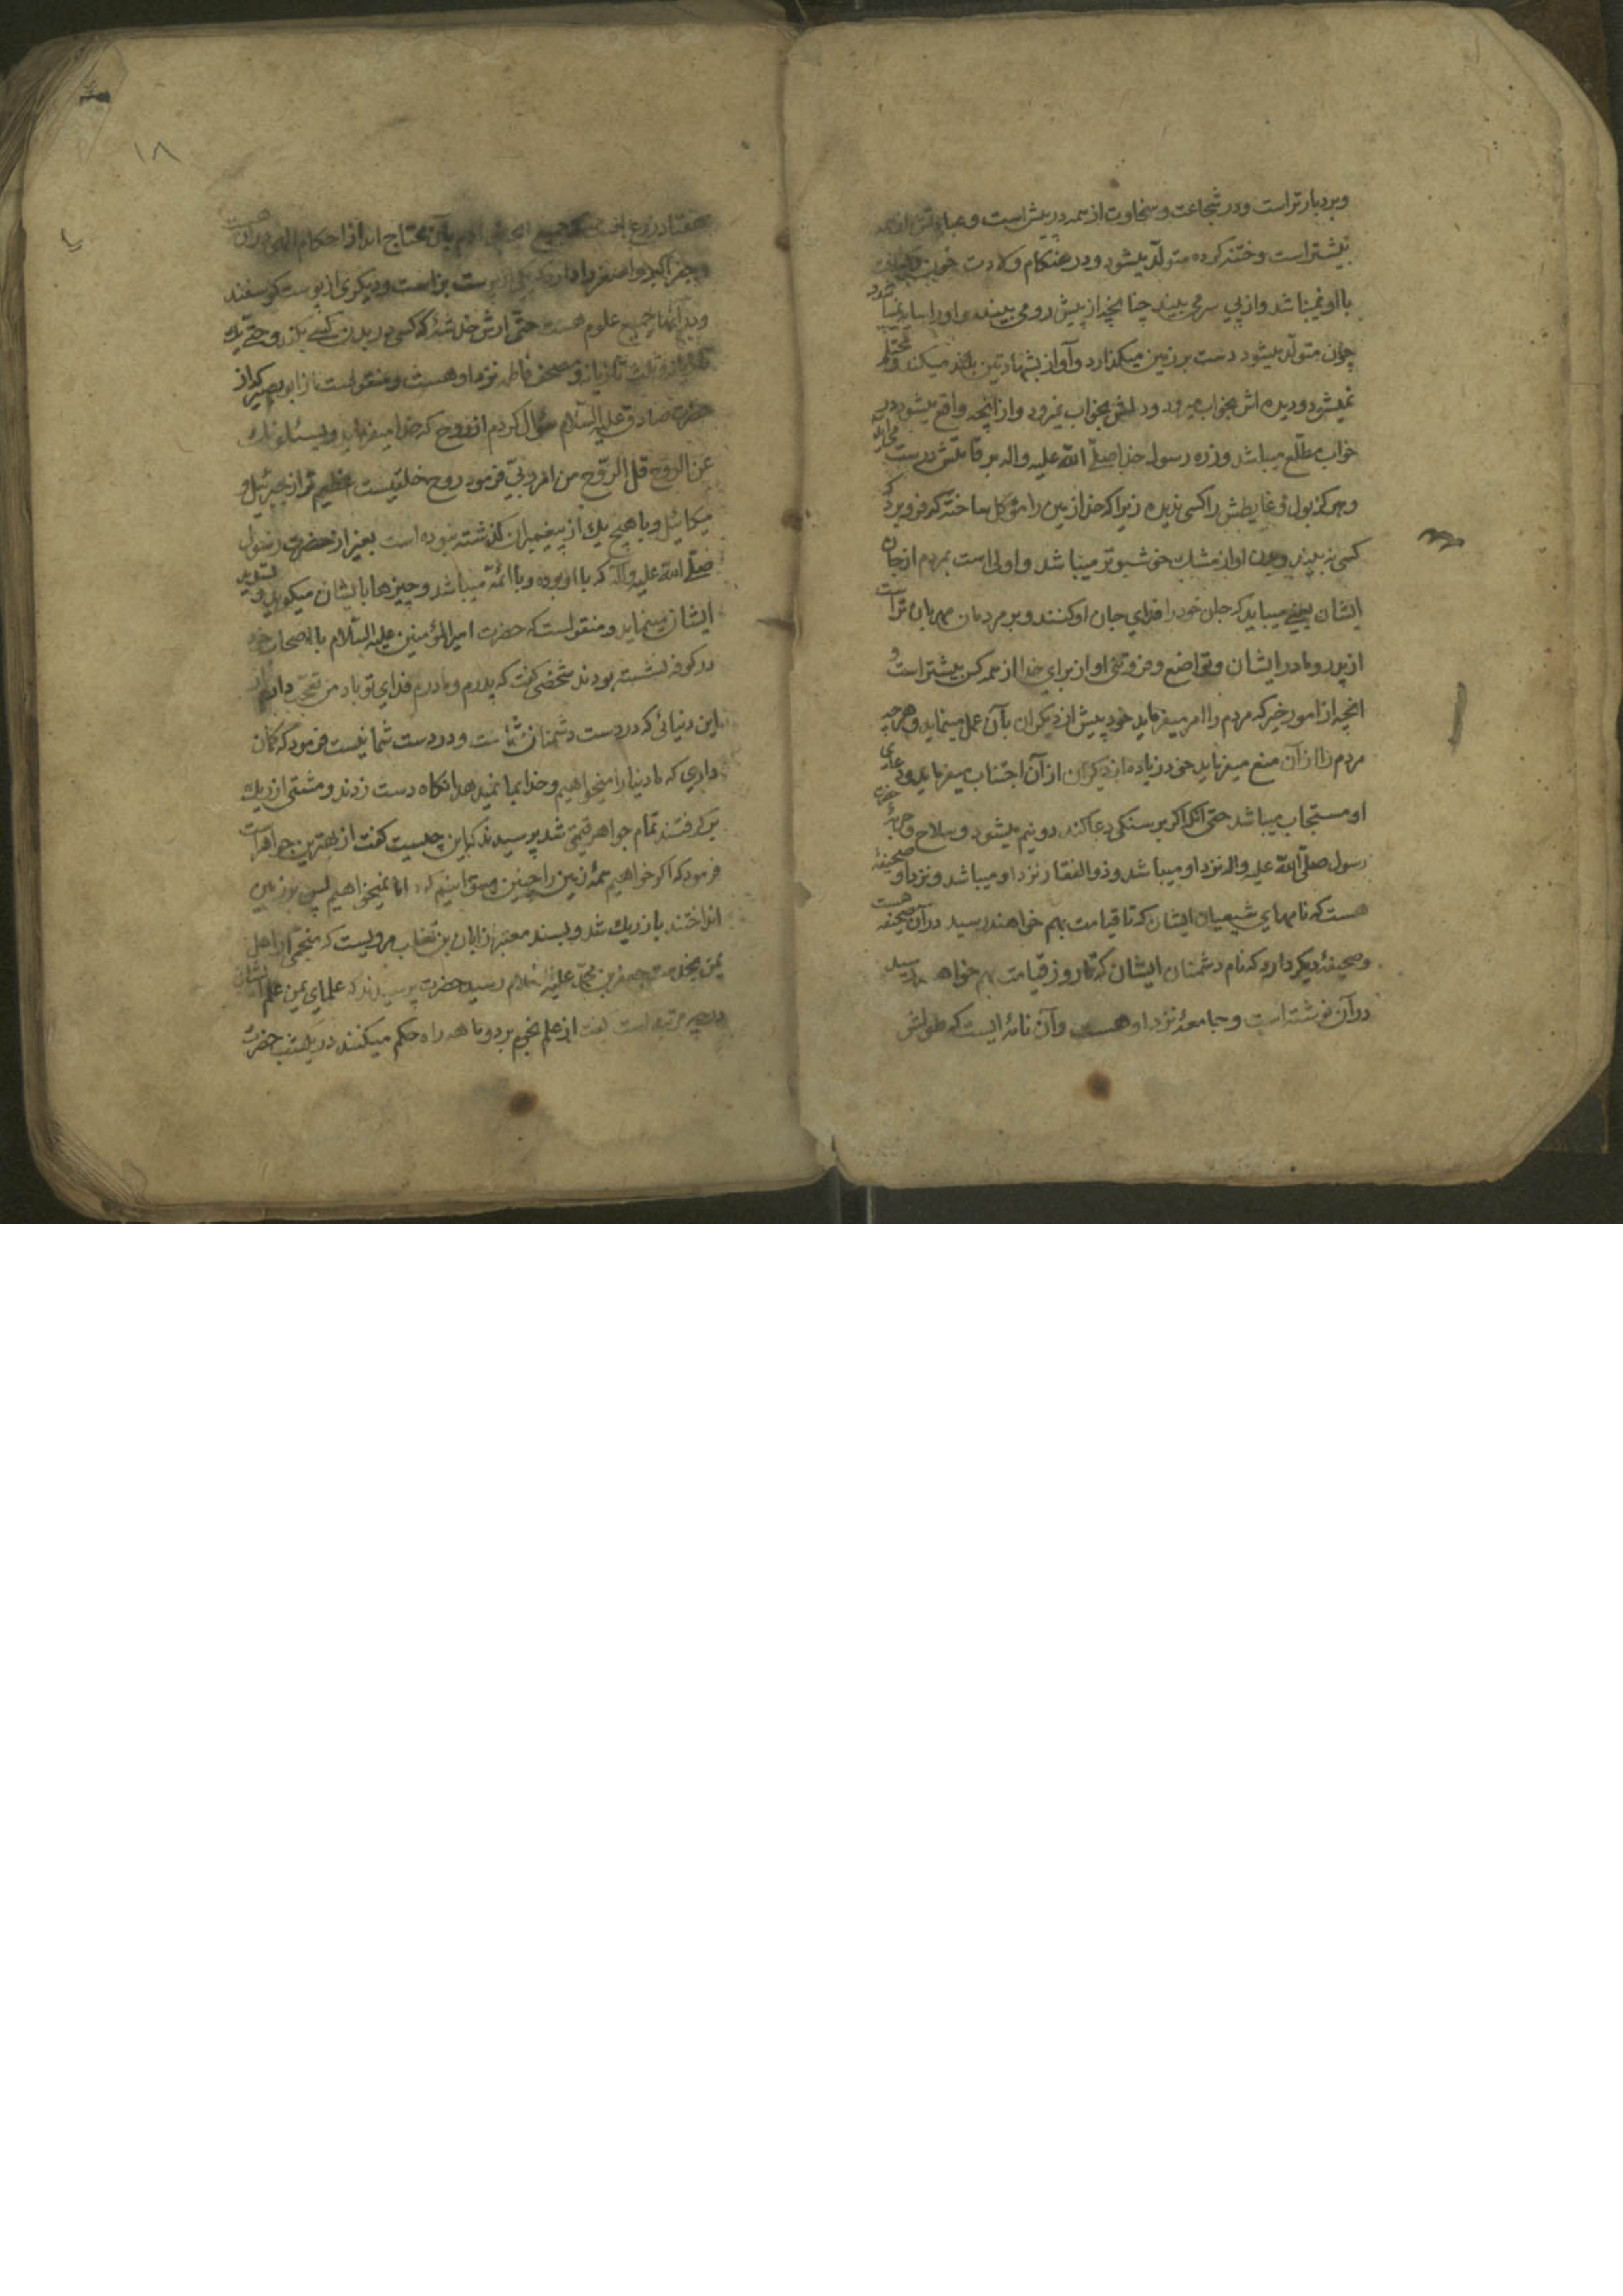 وبردبارتر است ودر شجاعت وسخاوت از همه در پیش است وعبادتش از همه
بیشتر است وختنه کرده متولد میشود ودر هنکام ولادت خون وکثافت
با او نمیباشد واز پی سر می بیند چنانچه از پیش رو می بیند و او را سایه نمیباشد و
چون متولد میشود دست بر زمین میکذارد وآواز بشهادتین بلند میکند ومحتلم
نمیشود ودیده اش بخواب میرود ودلش بخواب نمیرود واز آنچه واقع میشود در
خواب مطلع میباشد وزره رسول خدا صلی الله علیه واله بر قامتش درست
وهرکز بول وغایطش را کسی ندیده زیرا که خدا زمین را موکل ساخته که فرو برد که
کسی نه بیند وبدن او از مشك خوشبوتر میباشد واولی است بمردم از جان
ایشان یعنی میباید که جان خود را فدای جان او کنند وبر مردمان مهربان تر است
از پدر ومادر ایشان وتواضع وفروتنی او از برای خدا از همه کس بیشتر است و
انچه از امور خیر که مردم را امر میفرماید خود پیش از دیکران بآن عمل مینماید وهرچه
مردم را از آن منع میفرماید خود زیاده از دیکران از آن اجتناب میفرماید ودعای
او مستجاب میباشد حتی آنکه اکر بر سنکی دعا کند دو نیم میشود وسلاح وحربهٔ حضرت
رسول صلی الله علیه واله نزد او میباشد وذو الفقار نزد او میباشد ونزد او صحیفهٔ
هست که نامهای شیعیان ایشان که تا قیامت بهم خواهند رسید در آن صحیفه هست
وصحیفهٔ دیکر دارد که نام دشمنان ایشان که تا روز قیامت بهم خواهد رسید
در آن نوشته است وجامعهٔ نزد او هست وآن نامهٔ ایست که طولش
۱۸
هفتاد زرع است که جمیع انچه بنی ادم بآن محتاج اند از احکام الهی در آن هست
وجفر اکبر واصغر را دارد که یکی از پوست بز است ودیکری از پوست کوسفند
ودر آنها جمیع علوم هست حتی ارش خدشهٔ که کسی در بدن کسی بکند وحتی یك
تازیانه وثلث تازیانه ومصحف فاطمه نزد او هست ومنقولست از ابو بصیر که از
حضرت صادق علیه السلام سؤال کردم از روح که خدا میفرماید ویسئلونك
عن الروح قل الروح من امر ربی فرمود روح خلقیست عظیم تر از جبرئیل و
میکائیل وبا هیچ یك از پیغمبران کذشته نبوده است بغیر از حضرت رسول
صلی الله علیه وآله که با او بوده وبا ائمه میباشد وچیزها بایشان میکوید وتسدید
ایشان مینماید ومنقولست که حضرت امیرالمؤمنین علیه السلام با اصحاب خود
در کوفه نشسته بودند شخصی کفت که پدرم ومادرم فدای تو باد من تعجب دارم از
این دنیائی که در دست دشمنان شماست ودر دست شما نیست فرمود که کمان
داری که ما دنیا را میخواهیم وخدا بما نمیدهد انکاه دست زدند ومشتی از ریك
بر کرفتند تمام جواهر قیمتی شد پرسیدند که این چیست کفت از بهترین جواهر است
فرمود که اکر خواهیم همه زمین را چنین میتوانیم کرد اما نمیخواهیم پس بر زمین
انداختند باز ریك شد وبسند معتبر از ابان بن تغلب مرویست که منجمی از اهل
یمن بخدمت جعفر بن محمد علیه السلام رسید حضرت پرسیدند که علمای یمن علم ایشان
در چه مرتبه است کفت از علم نجوم بر دو ماهه راه حکم میکنند در یکشب حضرت